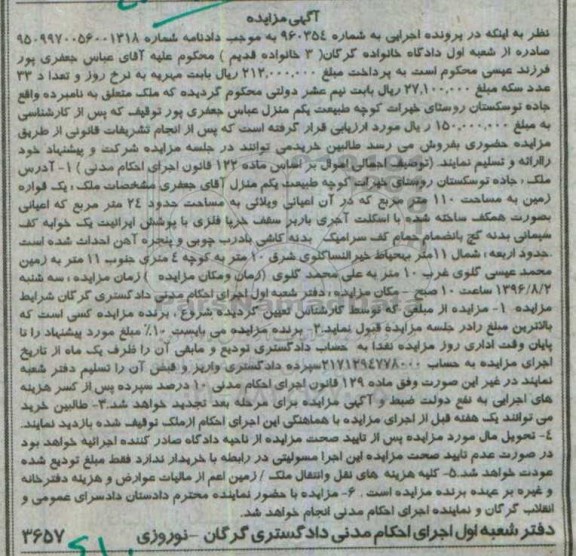 آگهی مزایده
نظر به اینکه در پرونده اجرایی به شماره ۹۶۰۳۵۴ به موجب دادنامه شماره ۹۵۰۹۹۷۰۰۵۶۰۰۱۳۱۸
صادره از شعبه اول دادگاه خانواده گرگان( ۳ خانواده قدیم ) محکوم علیه آقای عباس جعفری پور
فرزند عیسی محکوم است به پرداخت مبلغ ۲۱۲,۰۰۰,۰۰۰ ریال بابت مهریه به نرخ روز و تعدا د ۳۳
عدد سکه مبلغ ۲۷,۱۰۰,۰۰۰ ریال بابت نیم عشر دولتی محکوم گردیده که ملک متعلق به نامبرده واقع
جاده توسکستان روستای خیرات کوچه طبیعت یکم منزل عباس جعفری پور توقیف که پس از کارشناسی
به مبلغ ۱۵۰,۰۰۰,۰۰۰ ر یال مورد ارزیابی قرار گرفته است که پس از انجام تشریفات قانونی از طریق
مزایده حضوری بفروش می رسد طالبین خریدمی توانند در جلسه مزایده شرکت و پیشنهاد خود
راارائه و تسلیم نمایند. (توصیف اجمالی اموال بر اساس ماده ۱۲۲ قانون اجرای احکام مدنی ) ۱- آدرس
ملک : جاده توسکستان روستای خیرات کوچه طبیعت یکم منزل آقای جعفری مشخصات ملک : یک قواره
زمین به مساحت ۱۱۰ متر مربع که در آن اعیانی ویلائی به مساحت حدود ۲۴ متر مربع که اعیانی
بصورت همکف ساخته شده با اسکلت آجری باربر سقف خرپا فلزی با پوشش ایرانیت یک خوابه کف
سیمانی بدنه گچ بانضمام حمام کف سرامیک بدنه کاشی بادرب چوبی و پنجره آهن احداث شده است
.حدود اربعه : شمال ۱۱متر بحیاط خیرالنساگلوی شرق ۱۰ متر به کوچه ۴ متری جنوب ۱۱ متر به زمین
محمد عیسی گلوی غرب ۱۰ متر به علی محمد گلوی (زمان ومکان مزایده ) زمان مزایده : سه شنبه
۱۳۹۶/۸/۲ ساعت ۱۰ صبح - مکان مزایده : دفتر شعبه اول اجرای احکام مدنی دادگستری گرگان شرایط
مزایده ۱- مزایده از مبلغی که توسط کارشناس تعیین گردیده شروع ، برنده مزایده کسی است که
بالاترین مبلغ رادر جلسه مزایده قبول نماید.۲- برنده مزایده می بایست ۱۰٪ مبلغ مورد پیشنهاد را تا
پایان وقت اداری روز مزایده نقدا به حساب دادگستری تودیع و مابقی آن را ظرف یک ماه از تاریخ
اجرای مزایده به حساب ۲۱۷۱۲۹۴۷۷۸۰۰۰سپرده دادگستری واریز و قبض آن را تسلیم دفتر شعبه
نمایند در غیر این صورت وفق ماده ۱۲۹ قانون اجرای احکام مدنی ۱۰ درصد سپرده پس از کسر هزینه
های اجرایی به نفع دولت ضبط و آگهی مزایده برای مرحله بعد تجدید خواهد شد.۳- طالبین خرید
می توانند یک هفته قبل از اجرای مزایده با هماهنگی این اجرای احکام ازملک توقیف شده بازدید نمایند.
۴- تحویل مال مورد مزایده پس از تایید صحت مزایده از ناحیه دادگاه صادر کننده اجرائیه خواهد بود
در صورت عدم تایید صحت مزایده این اجرا مسولیتی در رابطه با خریدار ندارد فقط مبلغ تودیع شده
عودت خواهد شد.۵- کلیه هزینه های نقل وانتقال ملک / زمین اعم از مالیات عوارض و هزینه دفترخانه
و غیره بر عهده برنده مزایده است . ۶- مزایده با حضور نماینده محترم دادستان دادسرای عمومی و
انقلاب گرگان و نماینده اجرای احکام مدنی انجام خواهد شد.
دفتر شعبه اول اجرای احکام مدنی دادگستری گرگان -نوروزی ۳۶۵۷